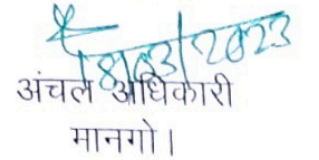 18/03/2023
अंचल अधिकारी
मानगो।